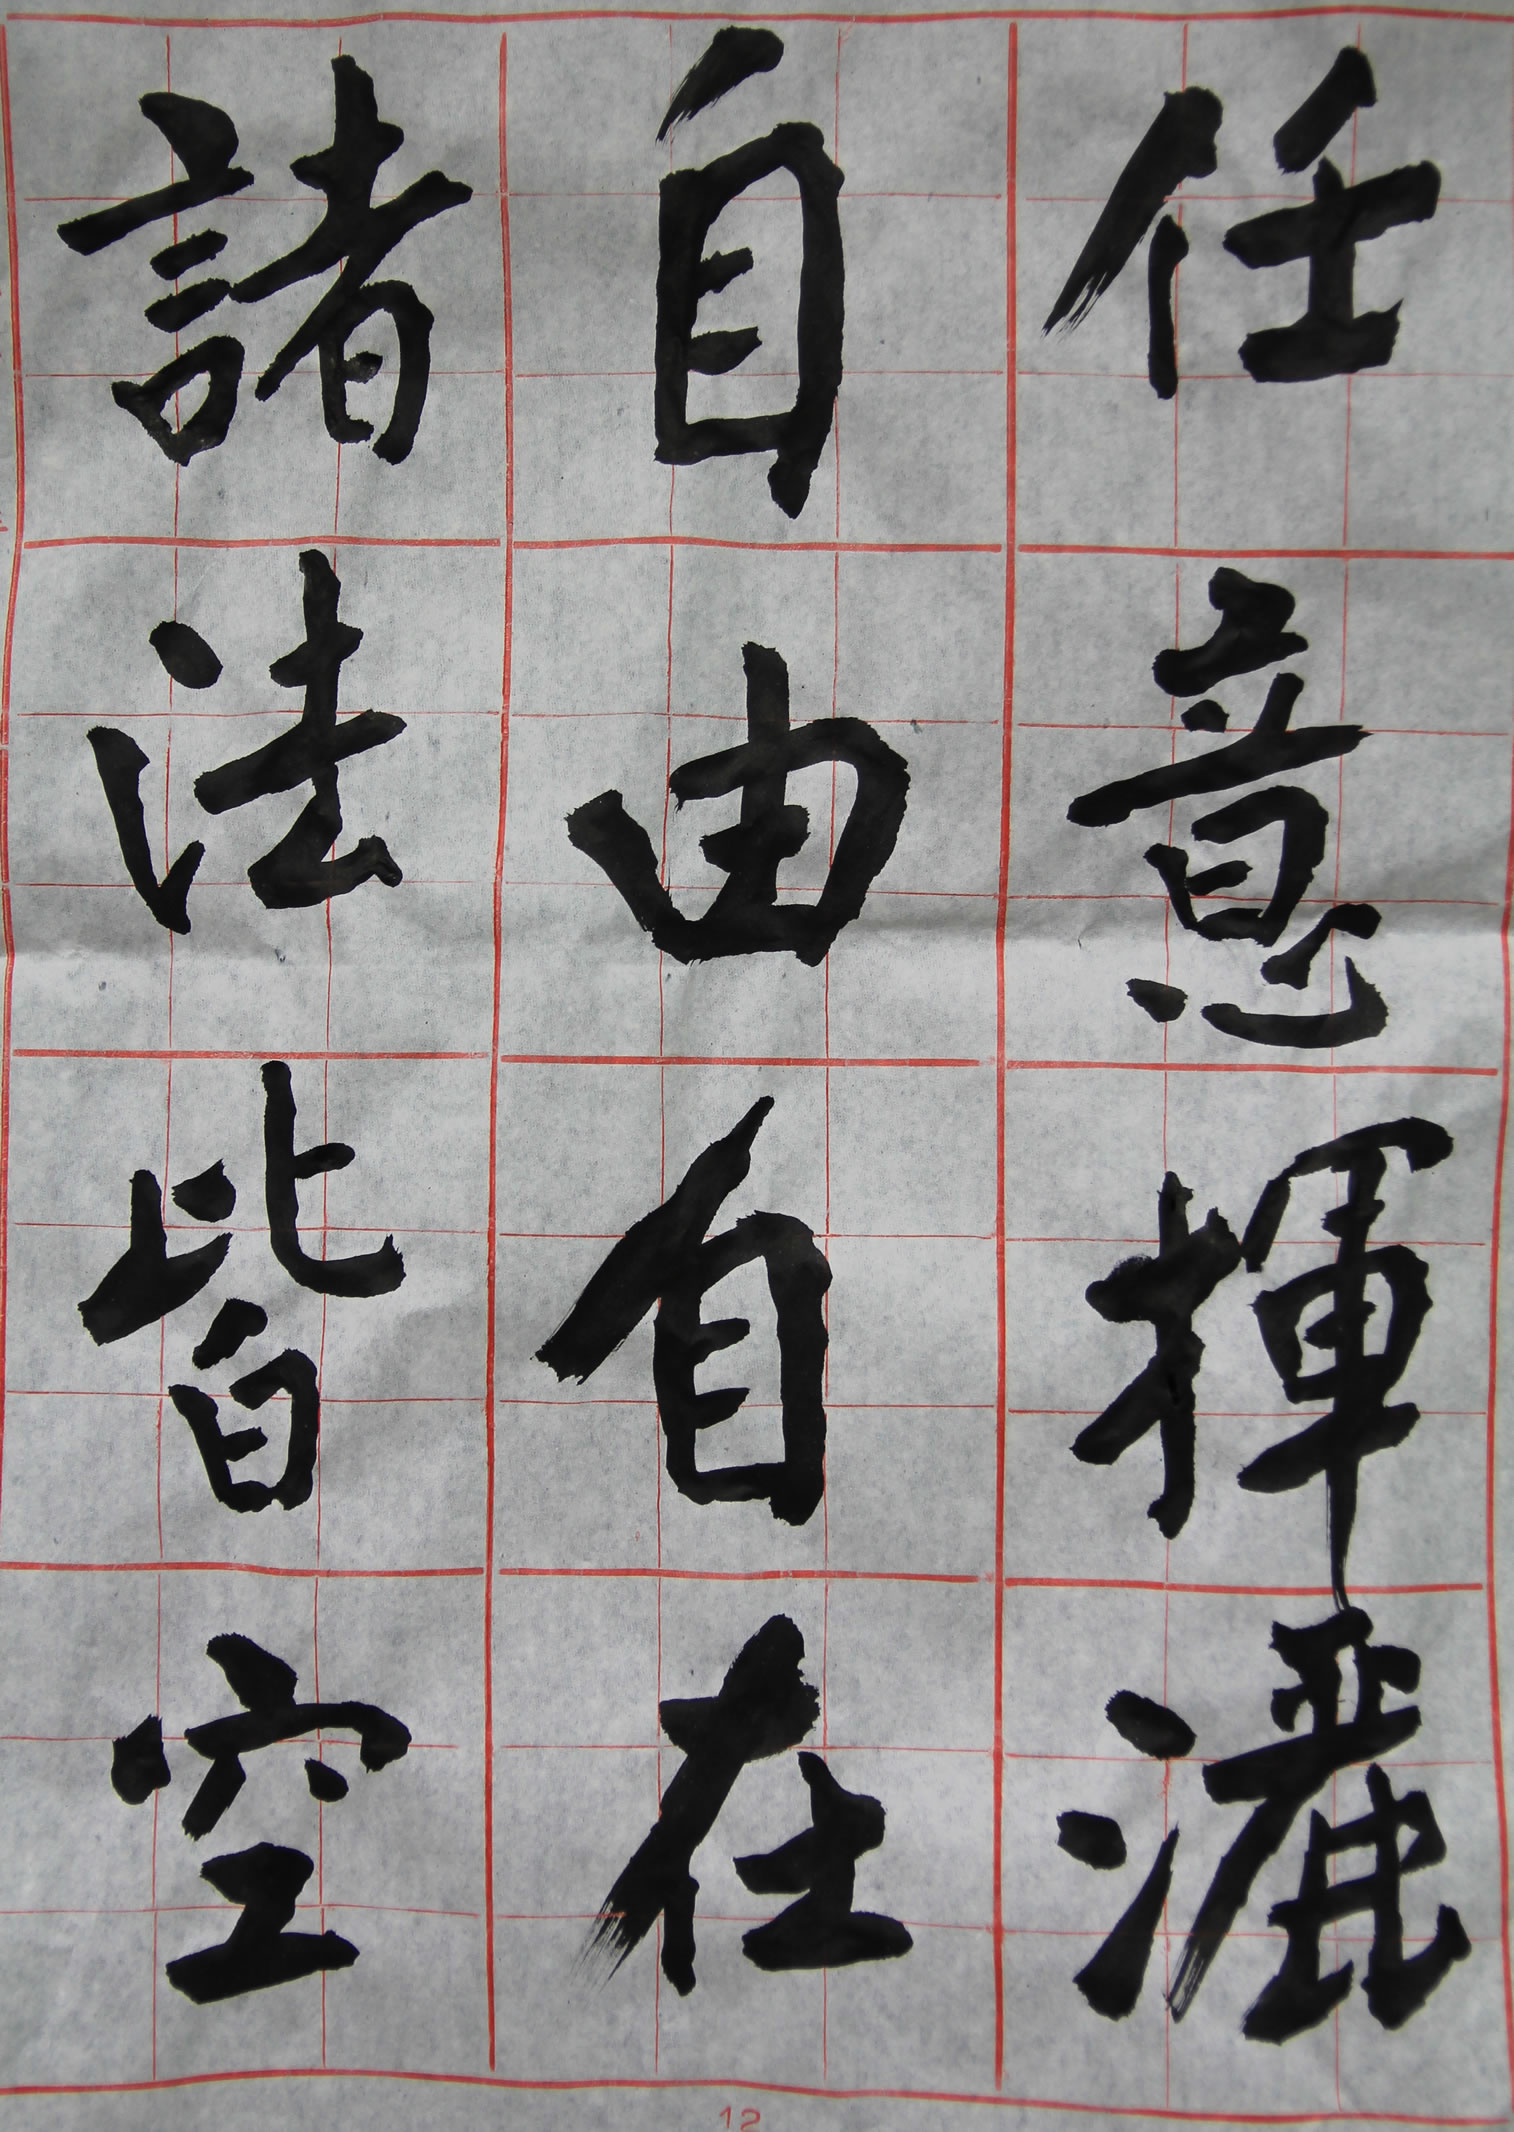 任意揮灑
自由自在
諸法皆空
12